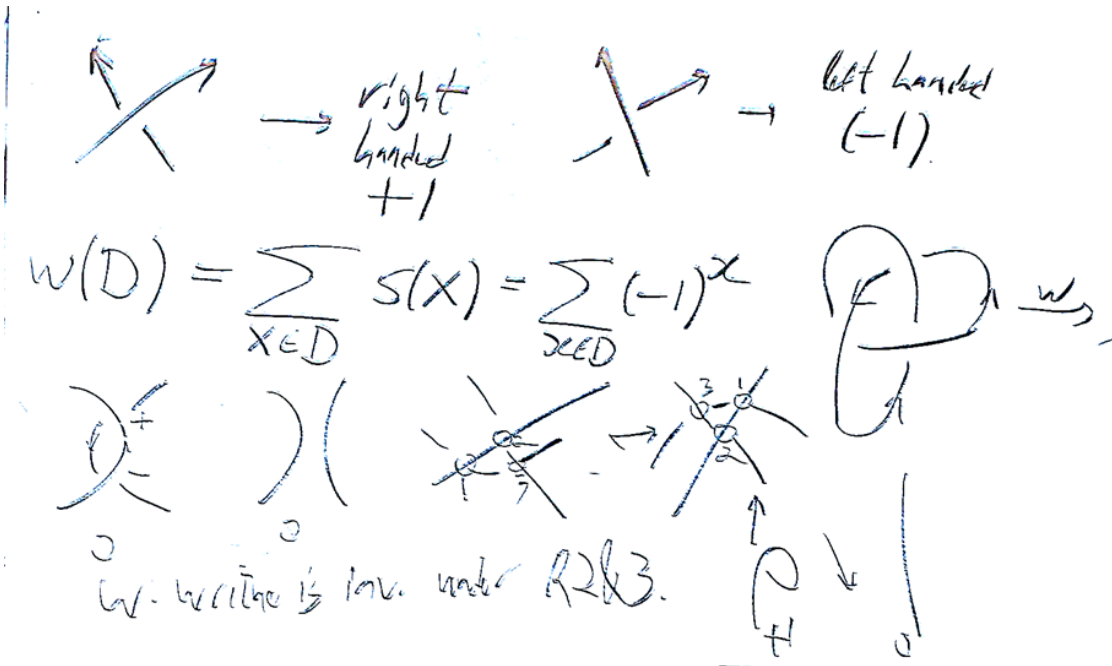 → right handed +1
→ left handed (-1).
w(D) = ∑_{X∈D} s(X) = ∑_{x∈D} (-1)^x
w→
+
-
3 1
2
1 2 3
0 0
writhe is inv. under R2&3.
+1 0